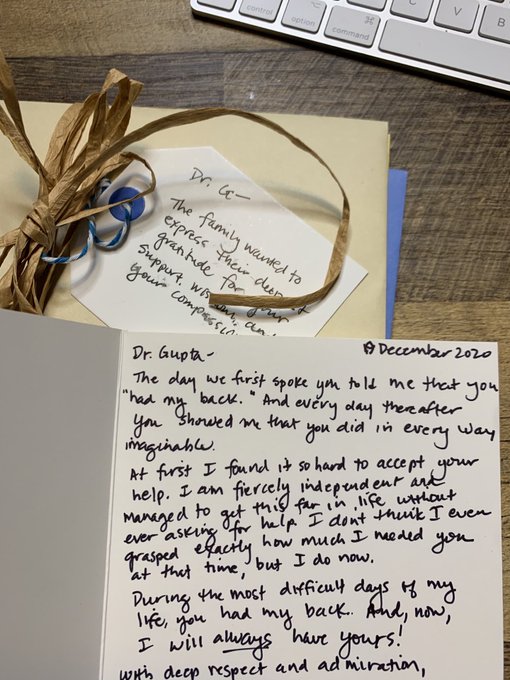 control
option
⌘
command
C
V
B
Dr. G-
The family wanted to
express their
gratitude for your
support, wisdom, and
your
Dr. Gupta-
December 2020
The day we first spoke you told me that you
"had my back." And every day thereafter
you showed me that you did in every way
imaginable.
At first I found it so hard to accept your
help. I am fiercely independent and
managed to get this far in life without
ever asking for help. I don't think I even
grasped exactly how much I needed you
at that time, but I do now.
During the most difficult days of my
life, you had my back. And, now,
I will always have yours!
With deep respect and admiration,